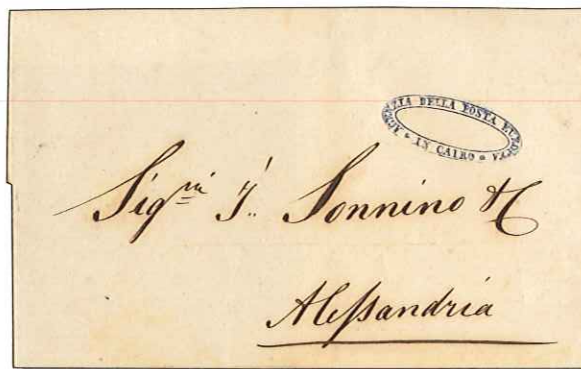 AGENZIA DELLA POSTA EUROPEA
* IN CAIRO *
Sigri I. Sonnino & C
Alessandria